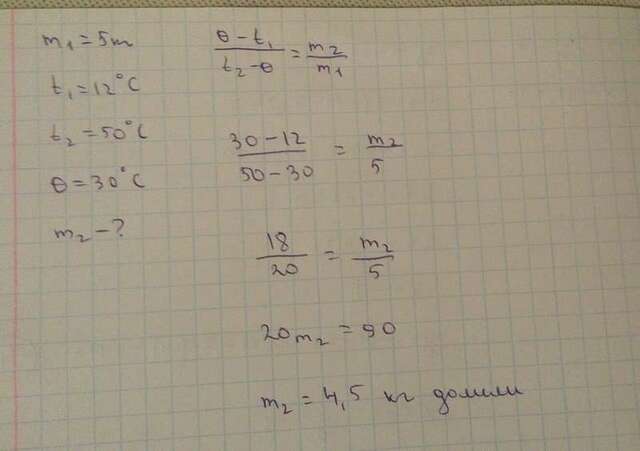 m₁ = 5m
t₁ = 12°C
t₂ = 50°C
θ = 30°C
m₂ – ?
(θ – t₁)/(t₂ – θ) = m₂/m₁
(30 – 12)/(50 – 30) = m₂/5
18/20 = m₂/5
20m₂ = 90
m₂ = 4,5 кг долили